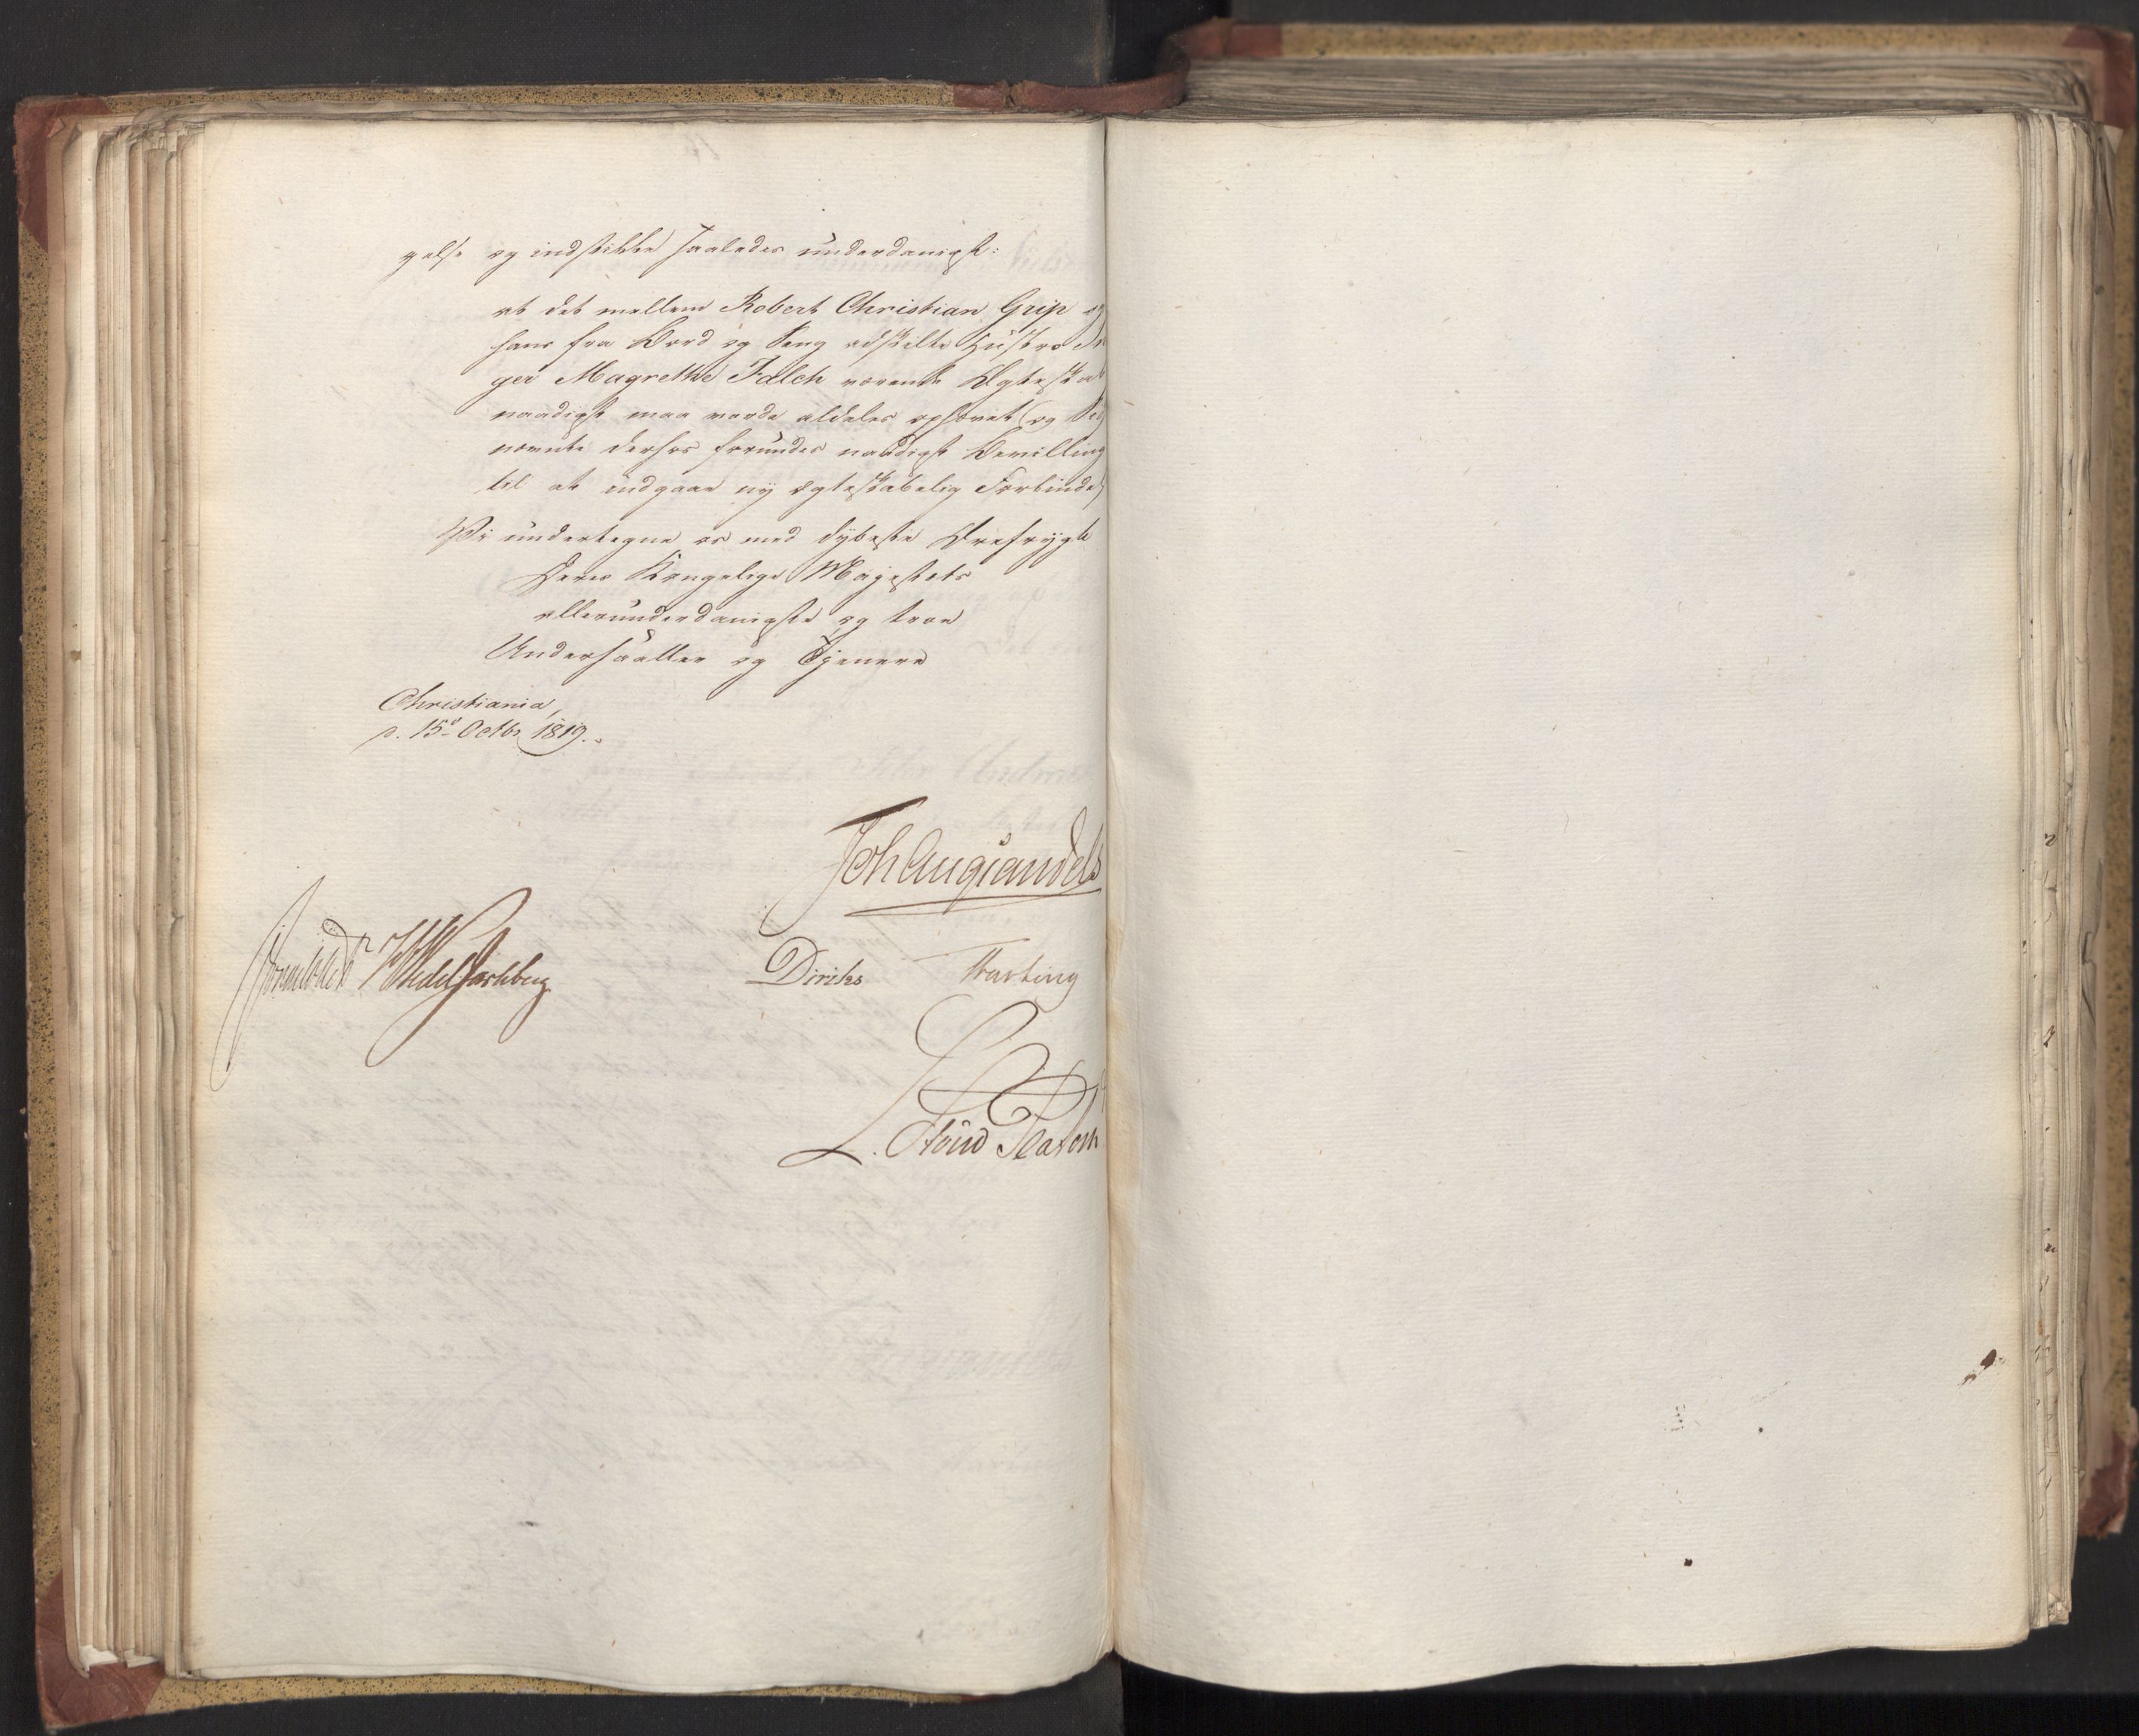 gelse og indstille saaledes underdanigst:
at det mellem Robert Christian Grip og
hans fra Bord og Seng adskilte Hustro In
ger Magrethe Falch værende Ægteska
naadigst maa vorde aldeles ophævet og
nævnte derhos forundes naadigst Bevilling
til at indgaae ny ægteskabelig Forbindel
Vi undertegne os med dybeste Ærefrygt
Deres Kongelige Majestæts
allerunderdanigste og troe
Undersaatter og Tjenere
Christiania,
d. 15d Octbr 1819.
Joh Aug Sandels
Sommerhielm HWedelJarlsberg Diriks Fasting
L. Stoud Platou